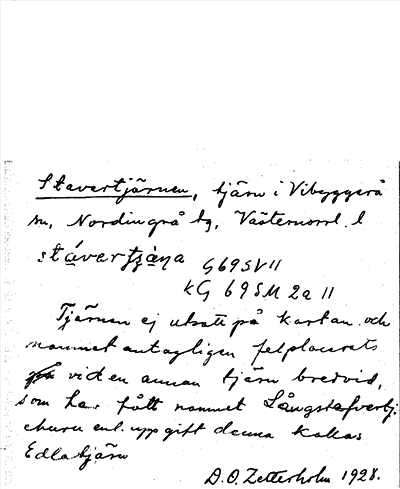 Stavertjärnen, tjärn i Vibyggerå
sn, Nordingrå tg, Västernorrl. l
stávertjæ̀ṇa G69SV11
KG 69SM 2a 11
Tjärnen ej utsatt på kartan och
namnet antagligen felplacerats
vid en annan tjärn bredvid,
som har fått namnet Långstafvertj.
churu enl. uppgift denna kallas
Edlatjärn
D.O. Zetterholm 1928.